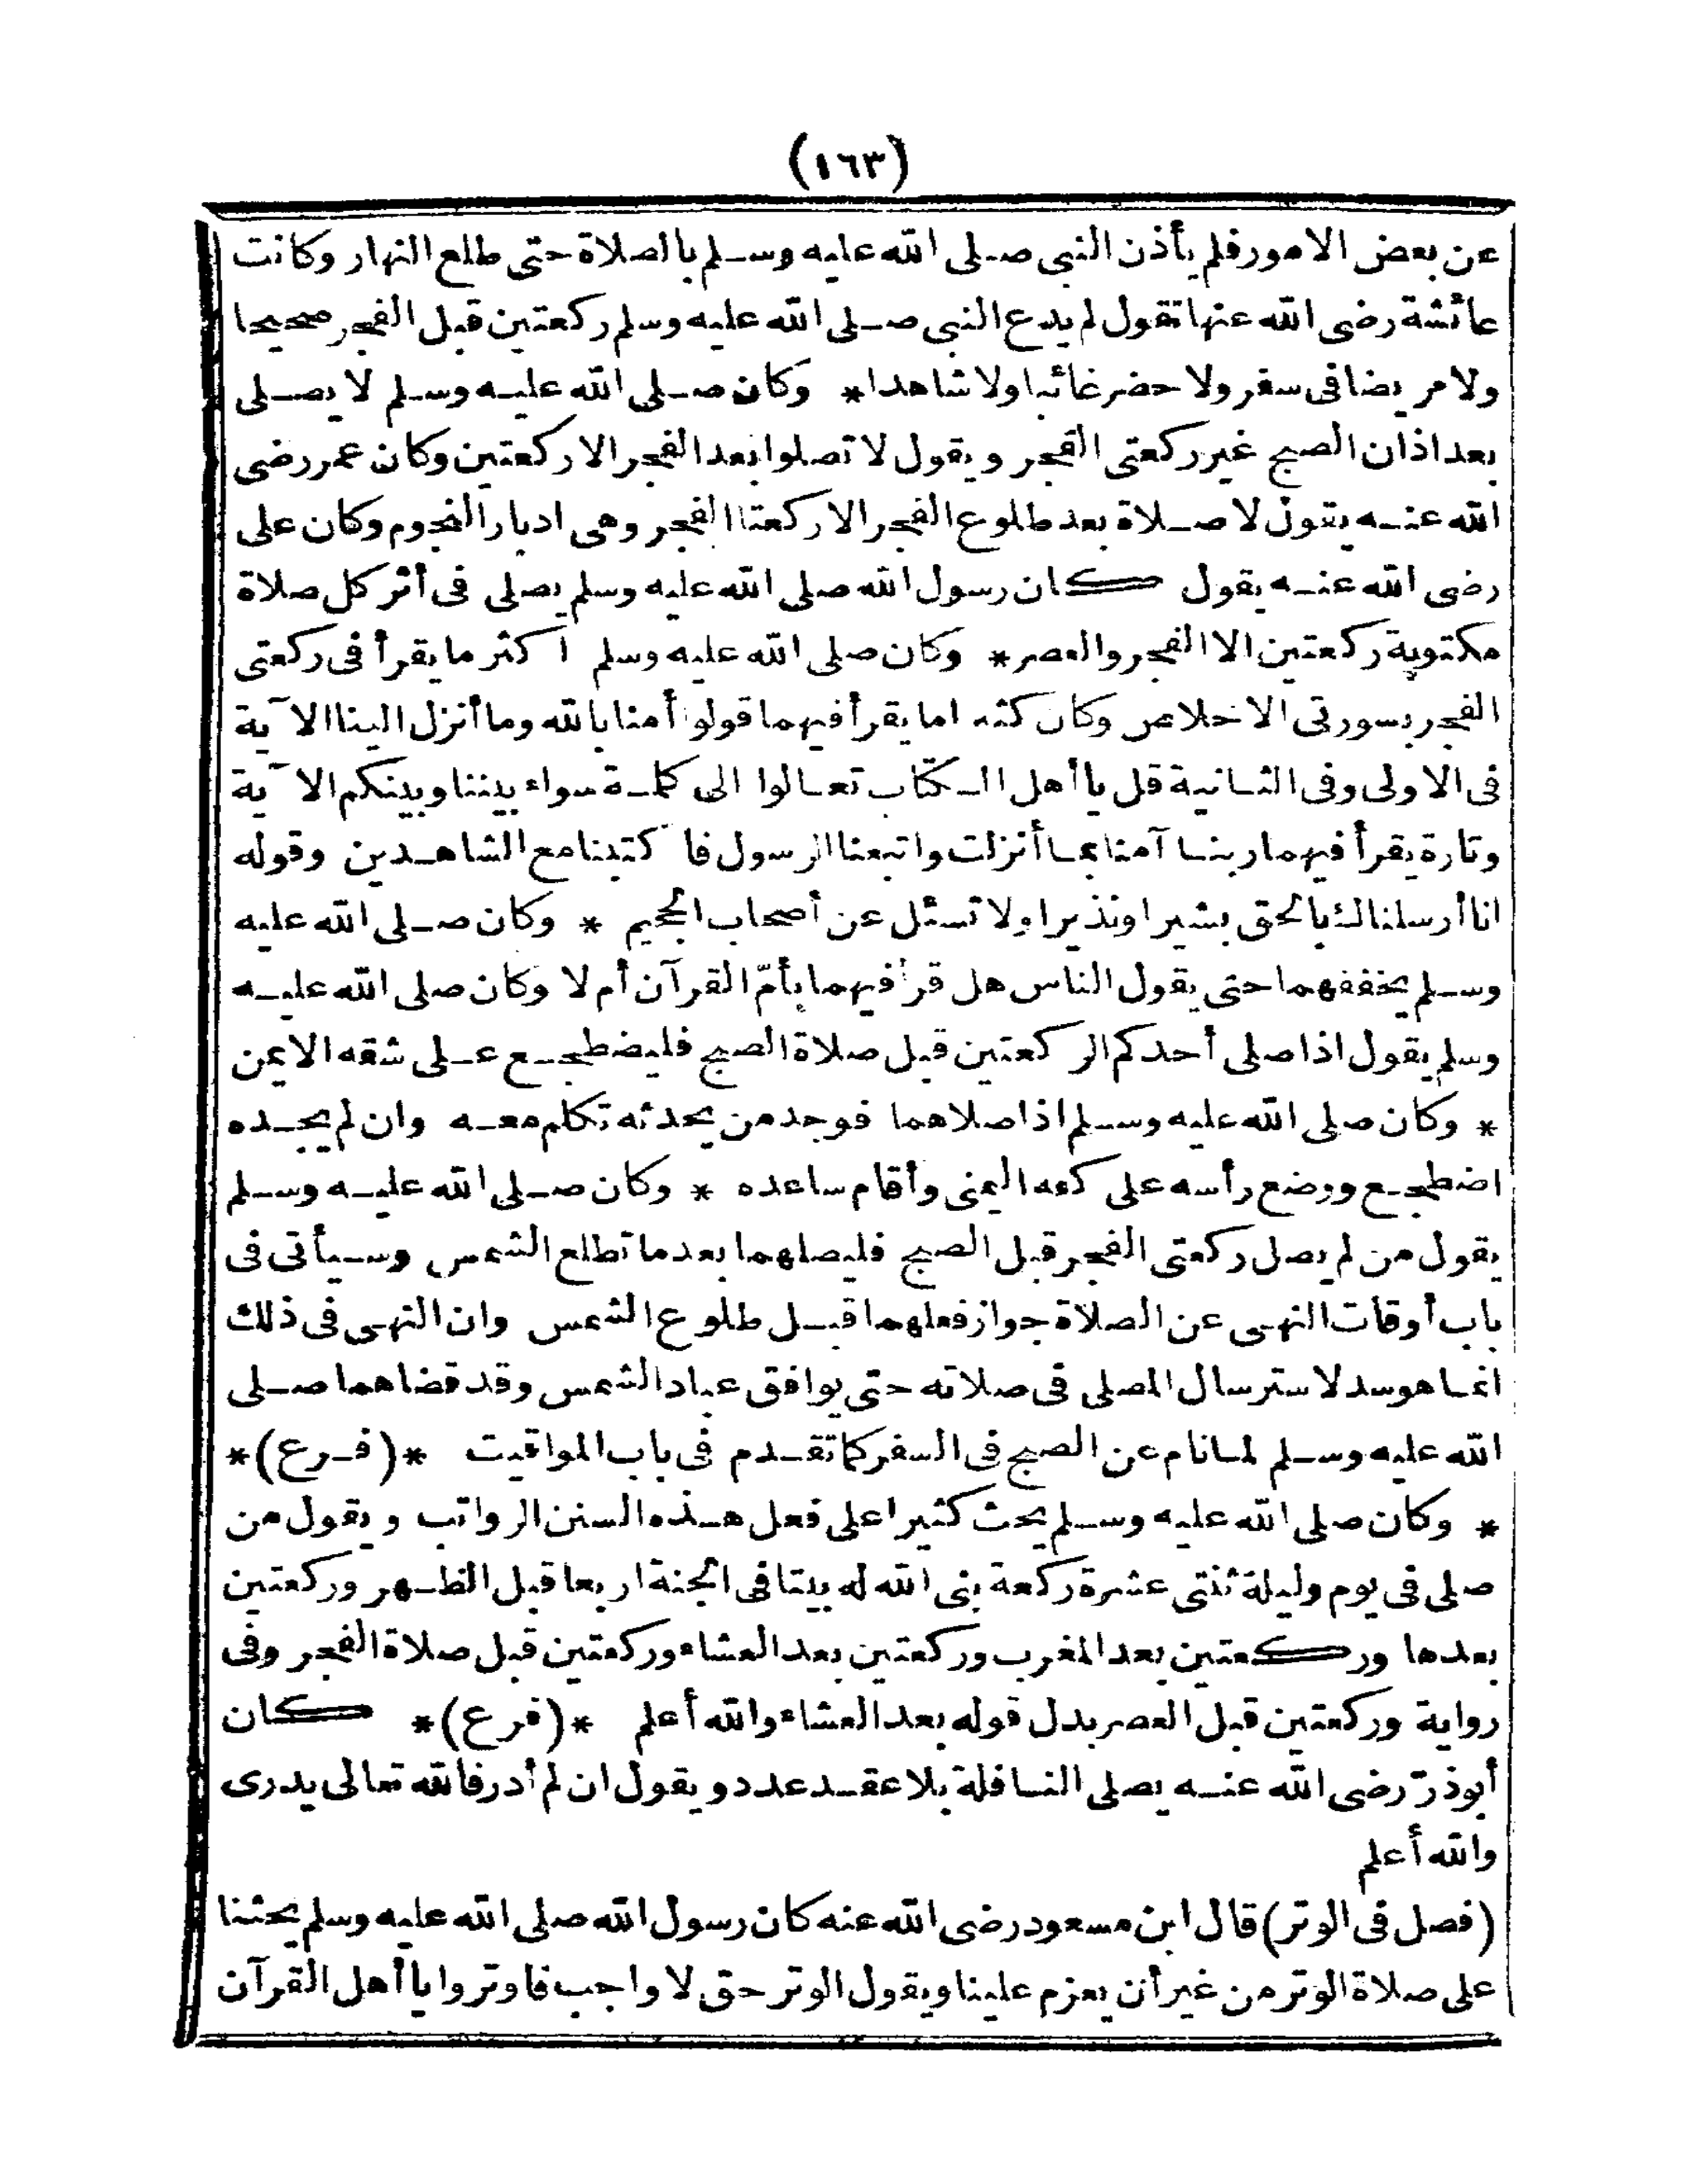 (١٦٣)
عن بعض الامور فلم يأذن النبى صلى الله عليه وسلم بالصلاة حتى طلع النهار وكانت
عائشة رضى الله عنها تقول لم يدع النبى صلى الله عليه وسلم ركعتين قبل الفجر صحيحا
ولا مريضا فى سفر ولا حضر غائبا ولا شاهدا * وكان صلى الله عليه وسلم لا يصلى
بعد اذان الصبح غير ركعتى الفجر ويقول لا تصلوا بعد الفجر الا ركعتين وكان عمر رضى
الله عنه يقول لا صلاة بعد طلوع الفجر الا ركعتا الفجر وهى ادبار النجوم وكان على
رضى الله عنه يقول كان رسول الله صلى الله عليه وسلم يصلى فى أثر كل صلاة
مكتوبة ركعتين الا الفجر والعصر * وكان صلى الله عليه وسلم أكثر ما يقرأ فى ركعتى
الفجر بسورتى الاخلاص وكان كثيرا ما يقرأ فيهما قولوا أمنا بالله وما أنزل الينا الآية
فى الاولى وفى الثانية قل يا أهل الكتاب تعالوا الى كلمة سواء بيننا وبينكم الآية
وتارة يقرأ فيهما ربنا آمنا بما أنزلت واتبعنا الرسول فاكتبنا مع الشاهدين وقوله
انا أرسلناك بالحق بشيرا ونذيرا ولا تسئل عن أصحاب الجحيم * وكان صلى الله عليه
وسلم يخففهما حتى يقول الناس هل قرأ فيهما بأمّ القرآن أم لا وكان صلى الله عليه
وسلم يقول اذا صلى أحدكم الركعتين قبل صلاة الصبح فليضطجع على شقه الايمن
* وكان صلى الله عليه وسلم اذا صلاهما فوجد من يحدثه تكلم معه وان لم يجده
اضطجع ووضع رأسه على كفه اليمنى وأقام ساعده * وكان صلى الله عليه وسلم
يقول من لم يصل ركعتى الفجر قبل الصبح فليصلهما بعد ما تطلع الشمس وسيأتى فى
باب أوقات النهى عن الصلاة جواز فعلهما قبل طلوع الشمس وان النهى فى ذلك
انما هو سد لاسترسال المصلى فى صلاته حتى يوافق عباد الشمس وقد قضاهما صلى
الله عليه وسلم لما نام عن الصبح فى السفر كما تقدم فى باب المواقيت *(فرع)*
* وكان صلى الله عليه وسلم يحث كثيرا على فعل هذه السنن الرواتب ويقول من
صلى فى يوم وليلة ثنتى عشرة ركعة بنى الله له بيتا فى الجنة اربعا قبل الظهر وركعتين
بعدها وركعتين بعد المغرب وركعتين بعد العشاء وركعتين قبل صلاة الفجر وفى
رواية وركعتين قبل العصر بدل قوله بعد العشاء والله أعلم *(فرع)* كان
أبو ذرّ رضى الله عنه يصلى النافلة بلا عقد عدد ويقول ان لم أدر فالله تعالى يدرى
والله أعلم
(فصل فى الوتر) قال ابن مسعود رضى الله عنه كان رسول الله صلى الله عليه وسلم يحثنا
على صلاة الوتر من غير أن يعزم علينا ويقول الوتر حق لا واجب فاوتروا يا أهل القرآن